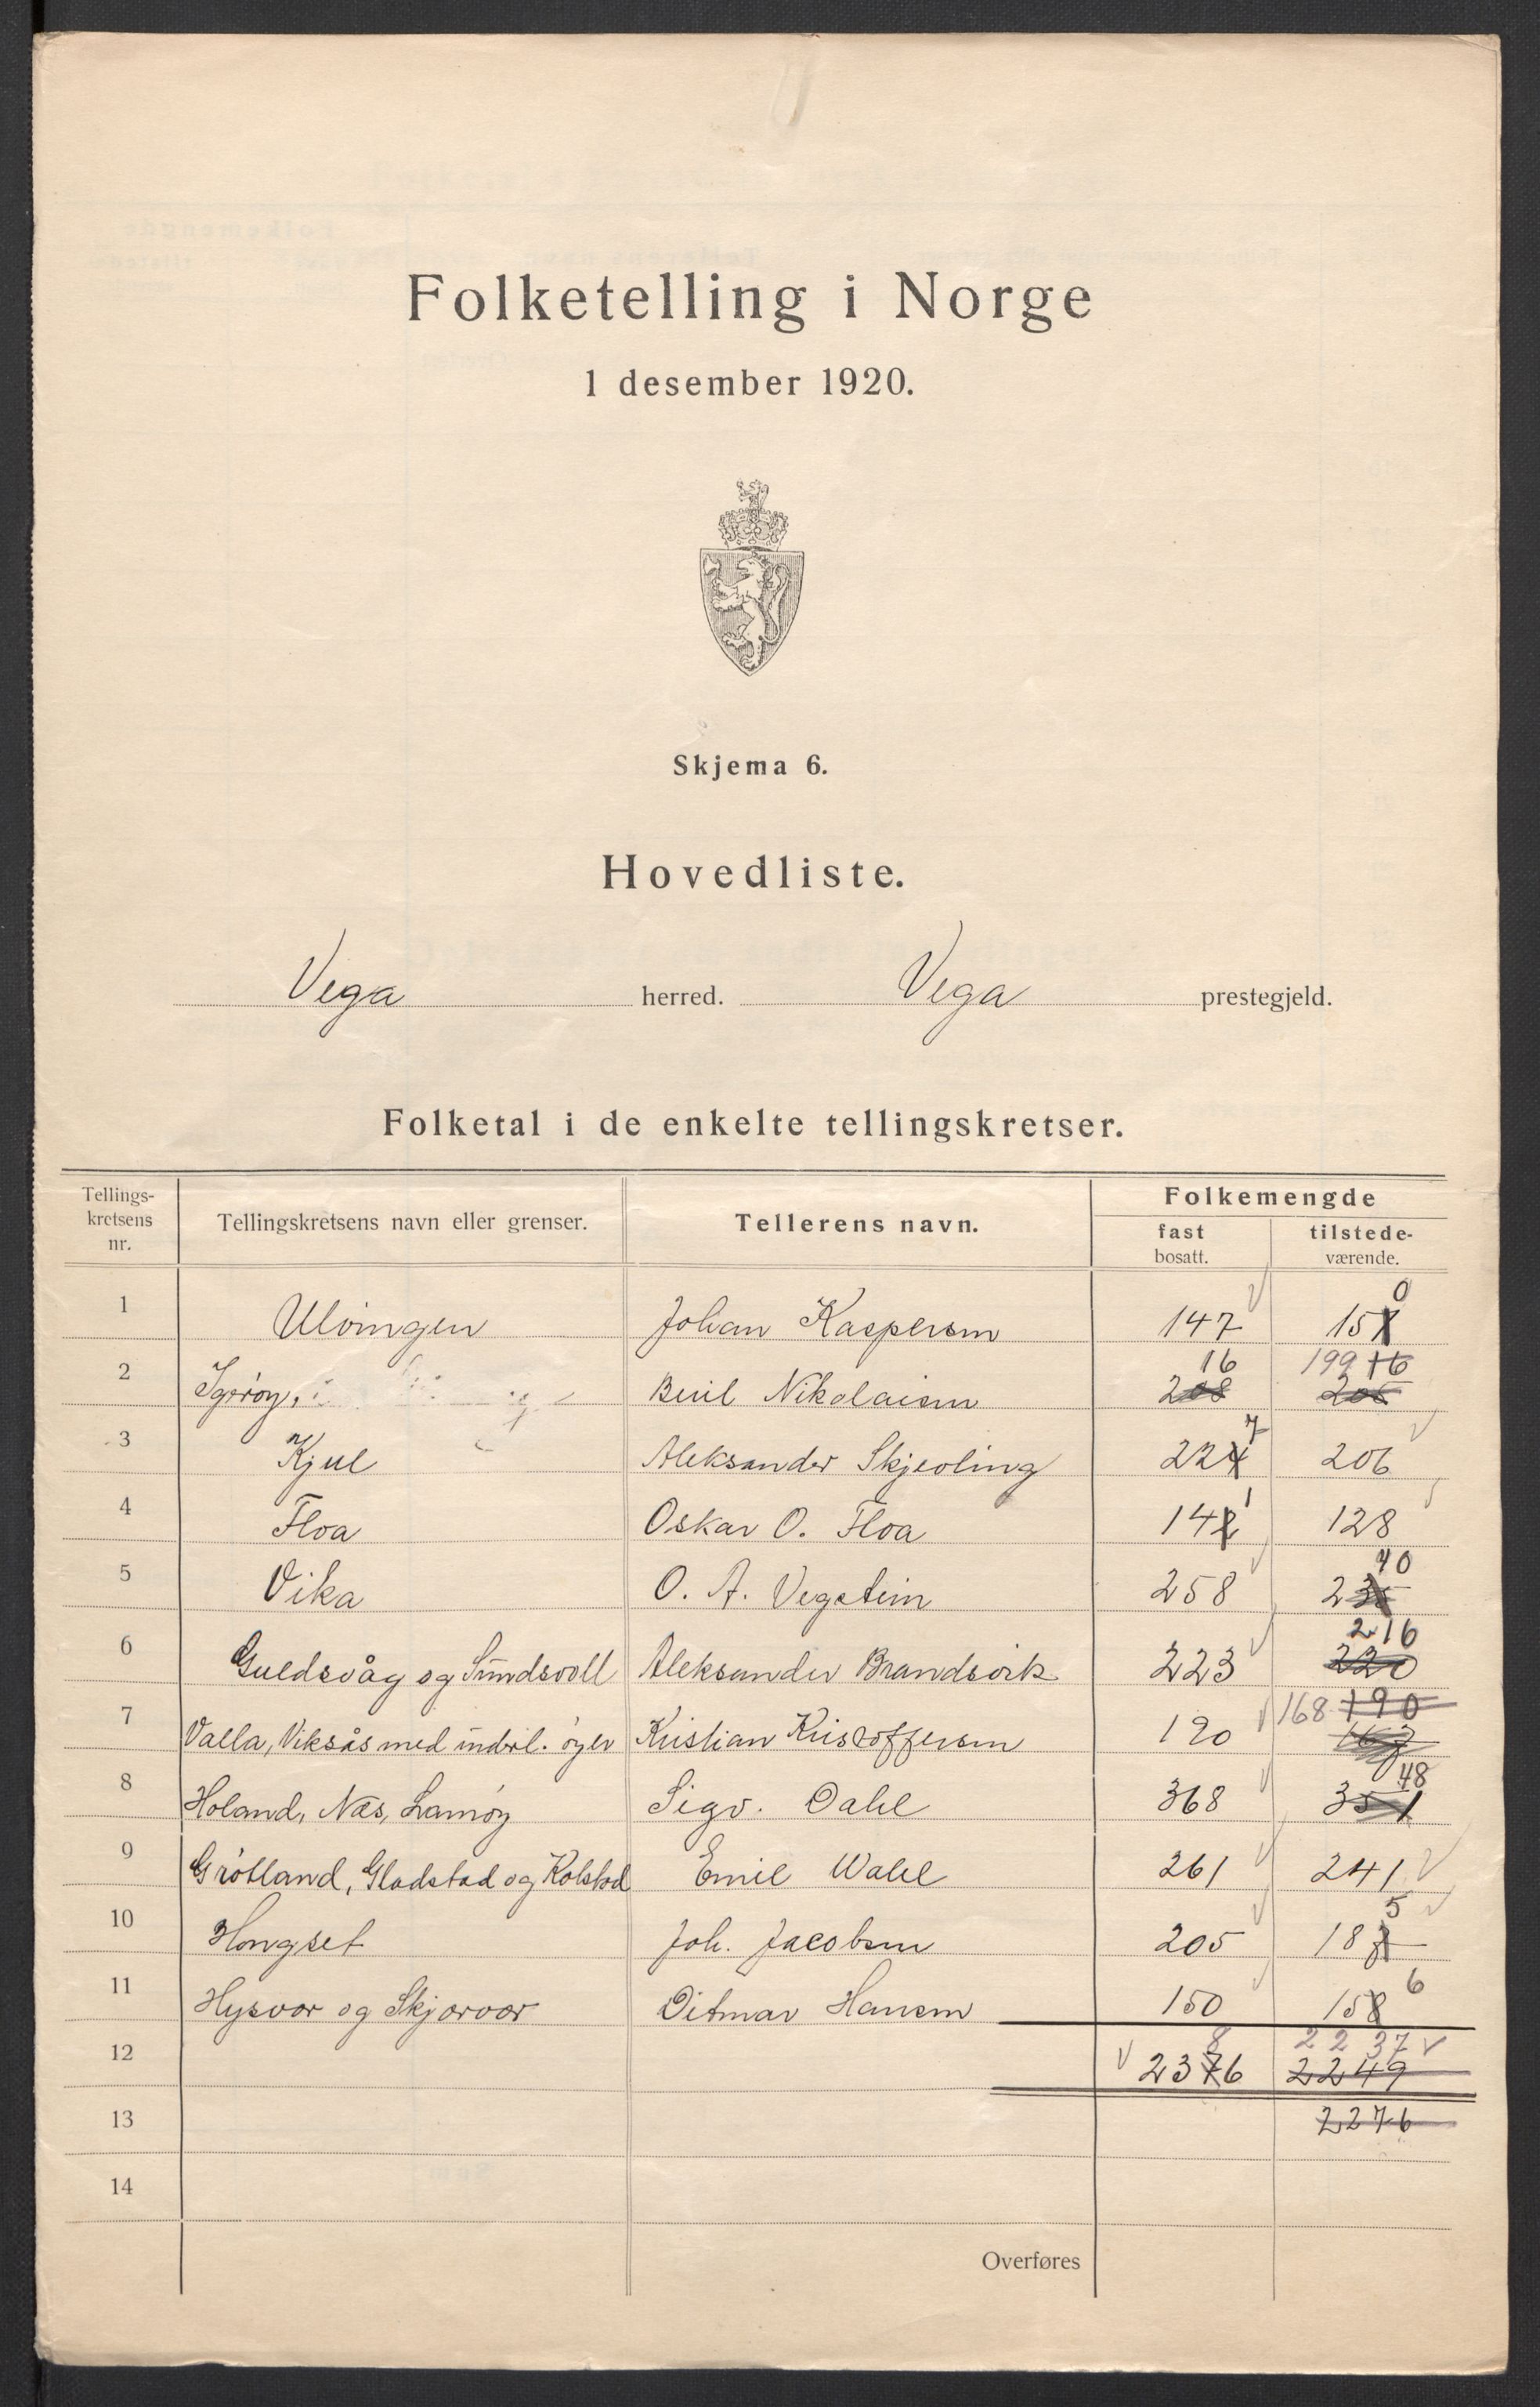 Folketelling i Norge
1 desember 1920.
Skjema 6.
Hovedliste.
Vega herred. Vega prestegjeld.
Folketal i de enkelte tellingskretser.
Tellings-
kretsens
nr.
Tellingskretsens navn eller grenser.
Tellerens navn.
Folkemengde
fast
bosatt.
tilstede-
værende.
1 Ulvingen Johan Kaspersen 147 150
2 Igerøy, Beril Nikolaisen 208 16 206 16 199
3 Kjul Aleksander Skjevling 224 7 206
4 Floa Oskar O. Floa 142 1 128
5 Vika O. A. Vegstein 258 235 40
6 Guldsvåg og Sundsvoll Aleksander Brandsvik 223 220 216
7 Valla, Viksås med indbl. øyer Kristian Kristoffersen 190 168 190
8 Holand, Nes, Lamøy Sigv. Dahl 368 351 48
9 Grøtland, Gladstad og Kolstad Emil Wahl 261 241
10 Hongset Joh. Jacobsen 205 187 5
11 Hysvær og Skjærvær Ditmar Hansen 150 158 6
12 2376 8 2249 2237
13 2276
14
Overføres